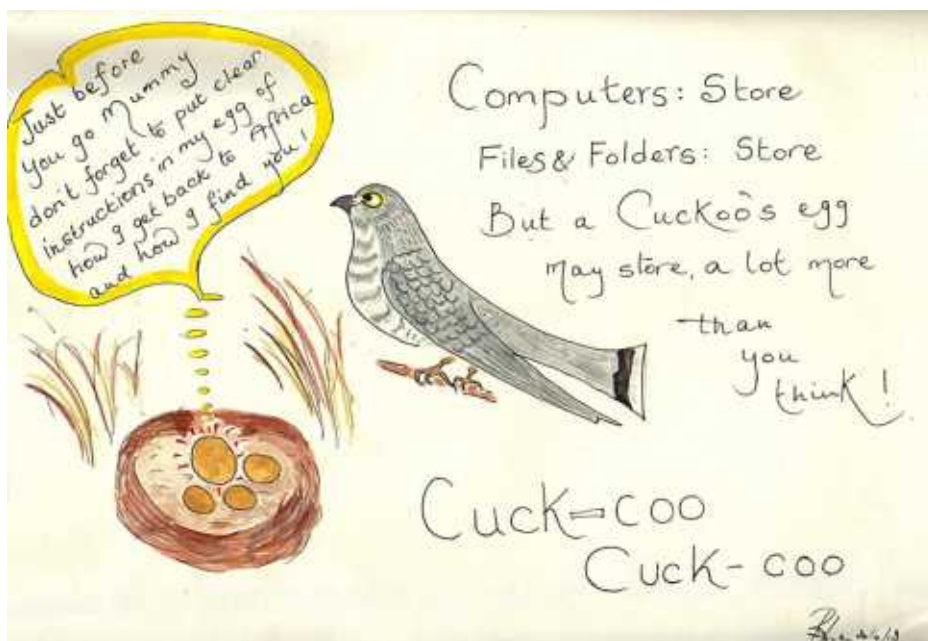 Just before
you go Mummy
don't forget to put clear
instructions in my egg of
how I get back to Africa
and how I find you!
Computers: Store
Files & Folders: Store
But a Cuckoo's egg
May store, a lot more
than
you
think!
Cuck-coo
Cuck-coo